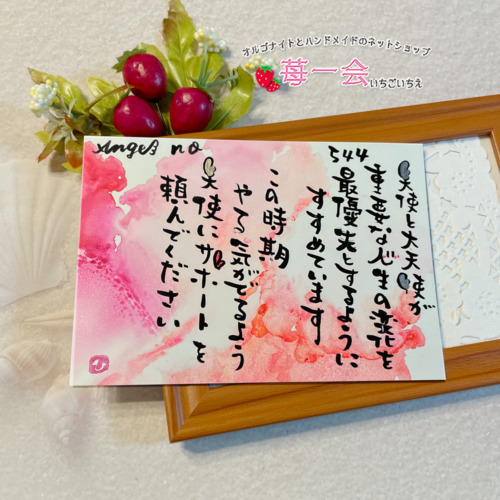 オルゴナイトとハンドメイドのネットショップ
苺一会
いちごいちえ
Angel no
544
天使と大天使が
重要な人生の変化を
最優先とするように
すすめています
この時期
やる気がでるよう
天使にサポートを
頼んでください